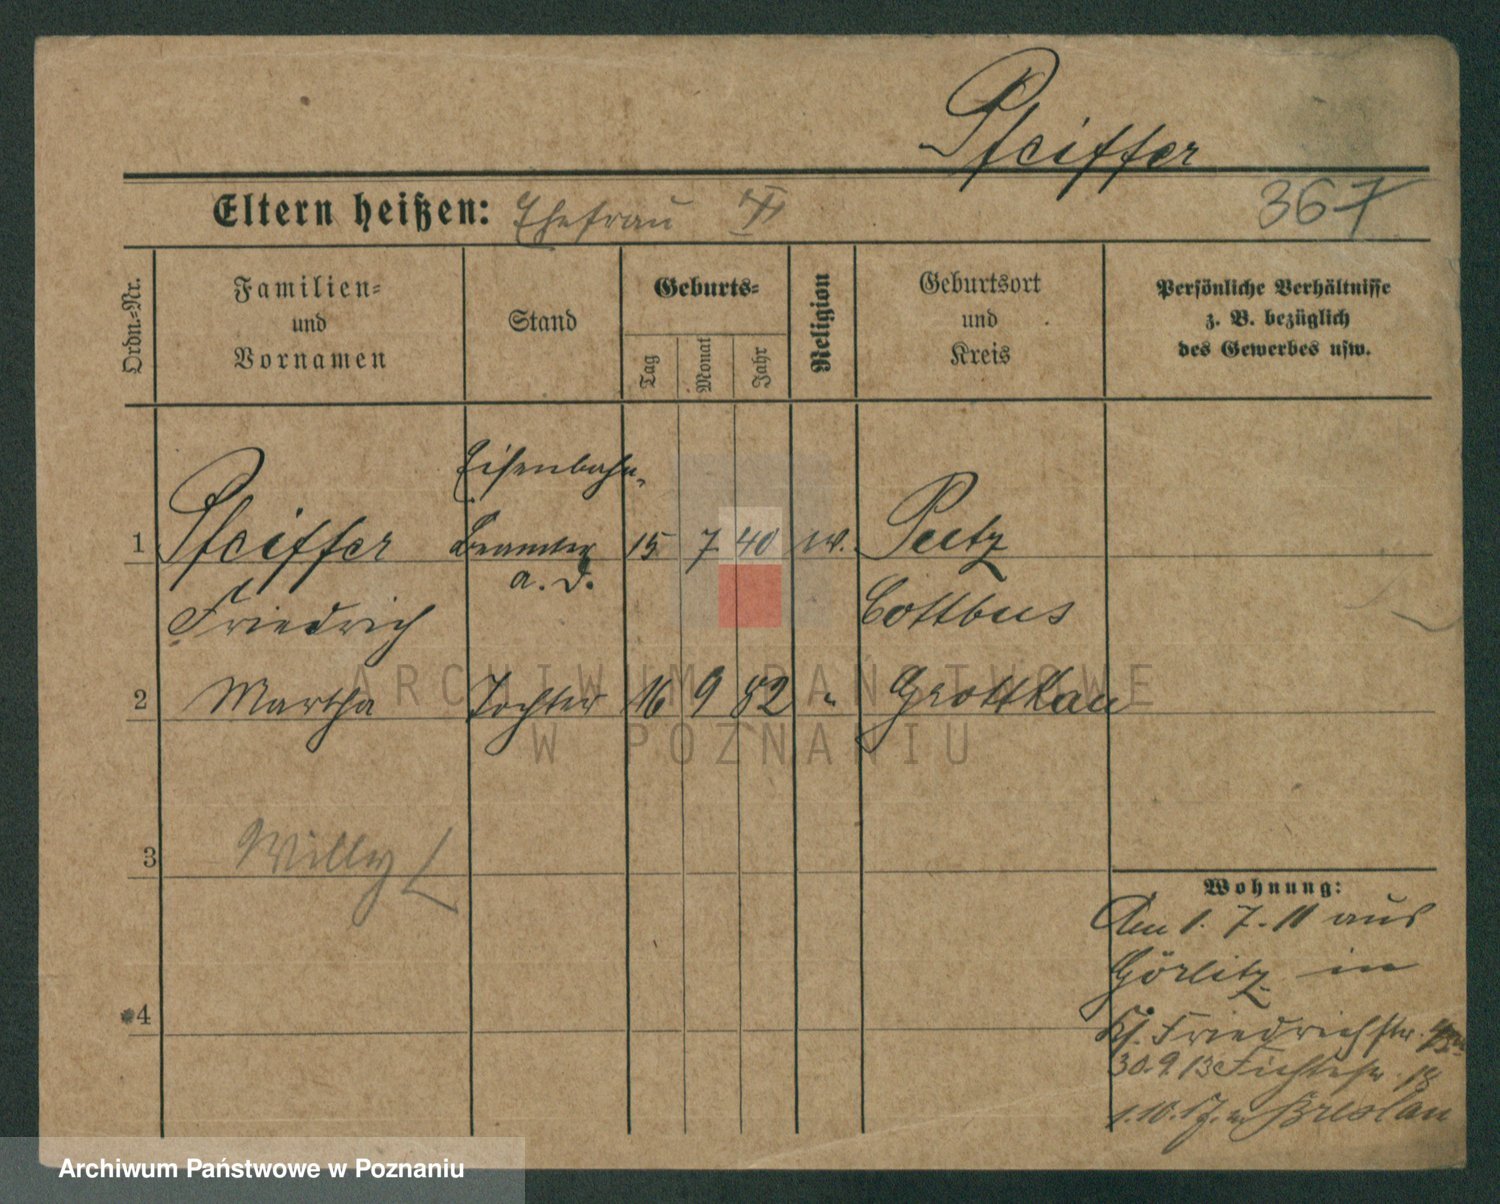 Pfeiffer
Eltern heißen: Ehefrau
367
Ordn.-Nr.
Familien-
und
Vornamen
Stand
Geburts-
Tag
Monat
Jahr
Religion
Geburtsort
und
Kreis
Persönliche Verhältnisse
z. B. bezüglich
des Gewerbes usw.
Eisenbahn-
1 Pfeiffer Beamter 15 7 40 Peitz
a. D.
Friedrich Cottbus
2 Martha Tochter 16 9 82 " Grottkau
3 Willy
4
Wohnung:
Am 1. 7. 11 aus
Görlitz in
Friedrichstr.
30.9.13 Fichtestr. 18
1.10.17. n. Breslau
ARCHIWUM PAŃSTWOWE
W POZNANIU
Archiwum Państwowe w Poznaniu